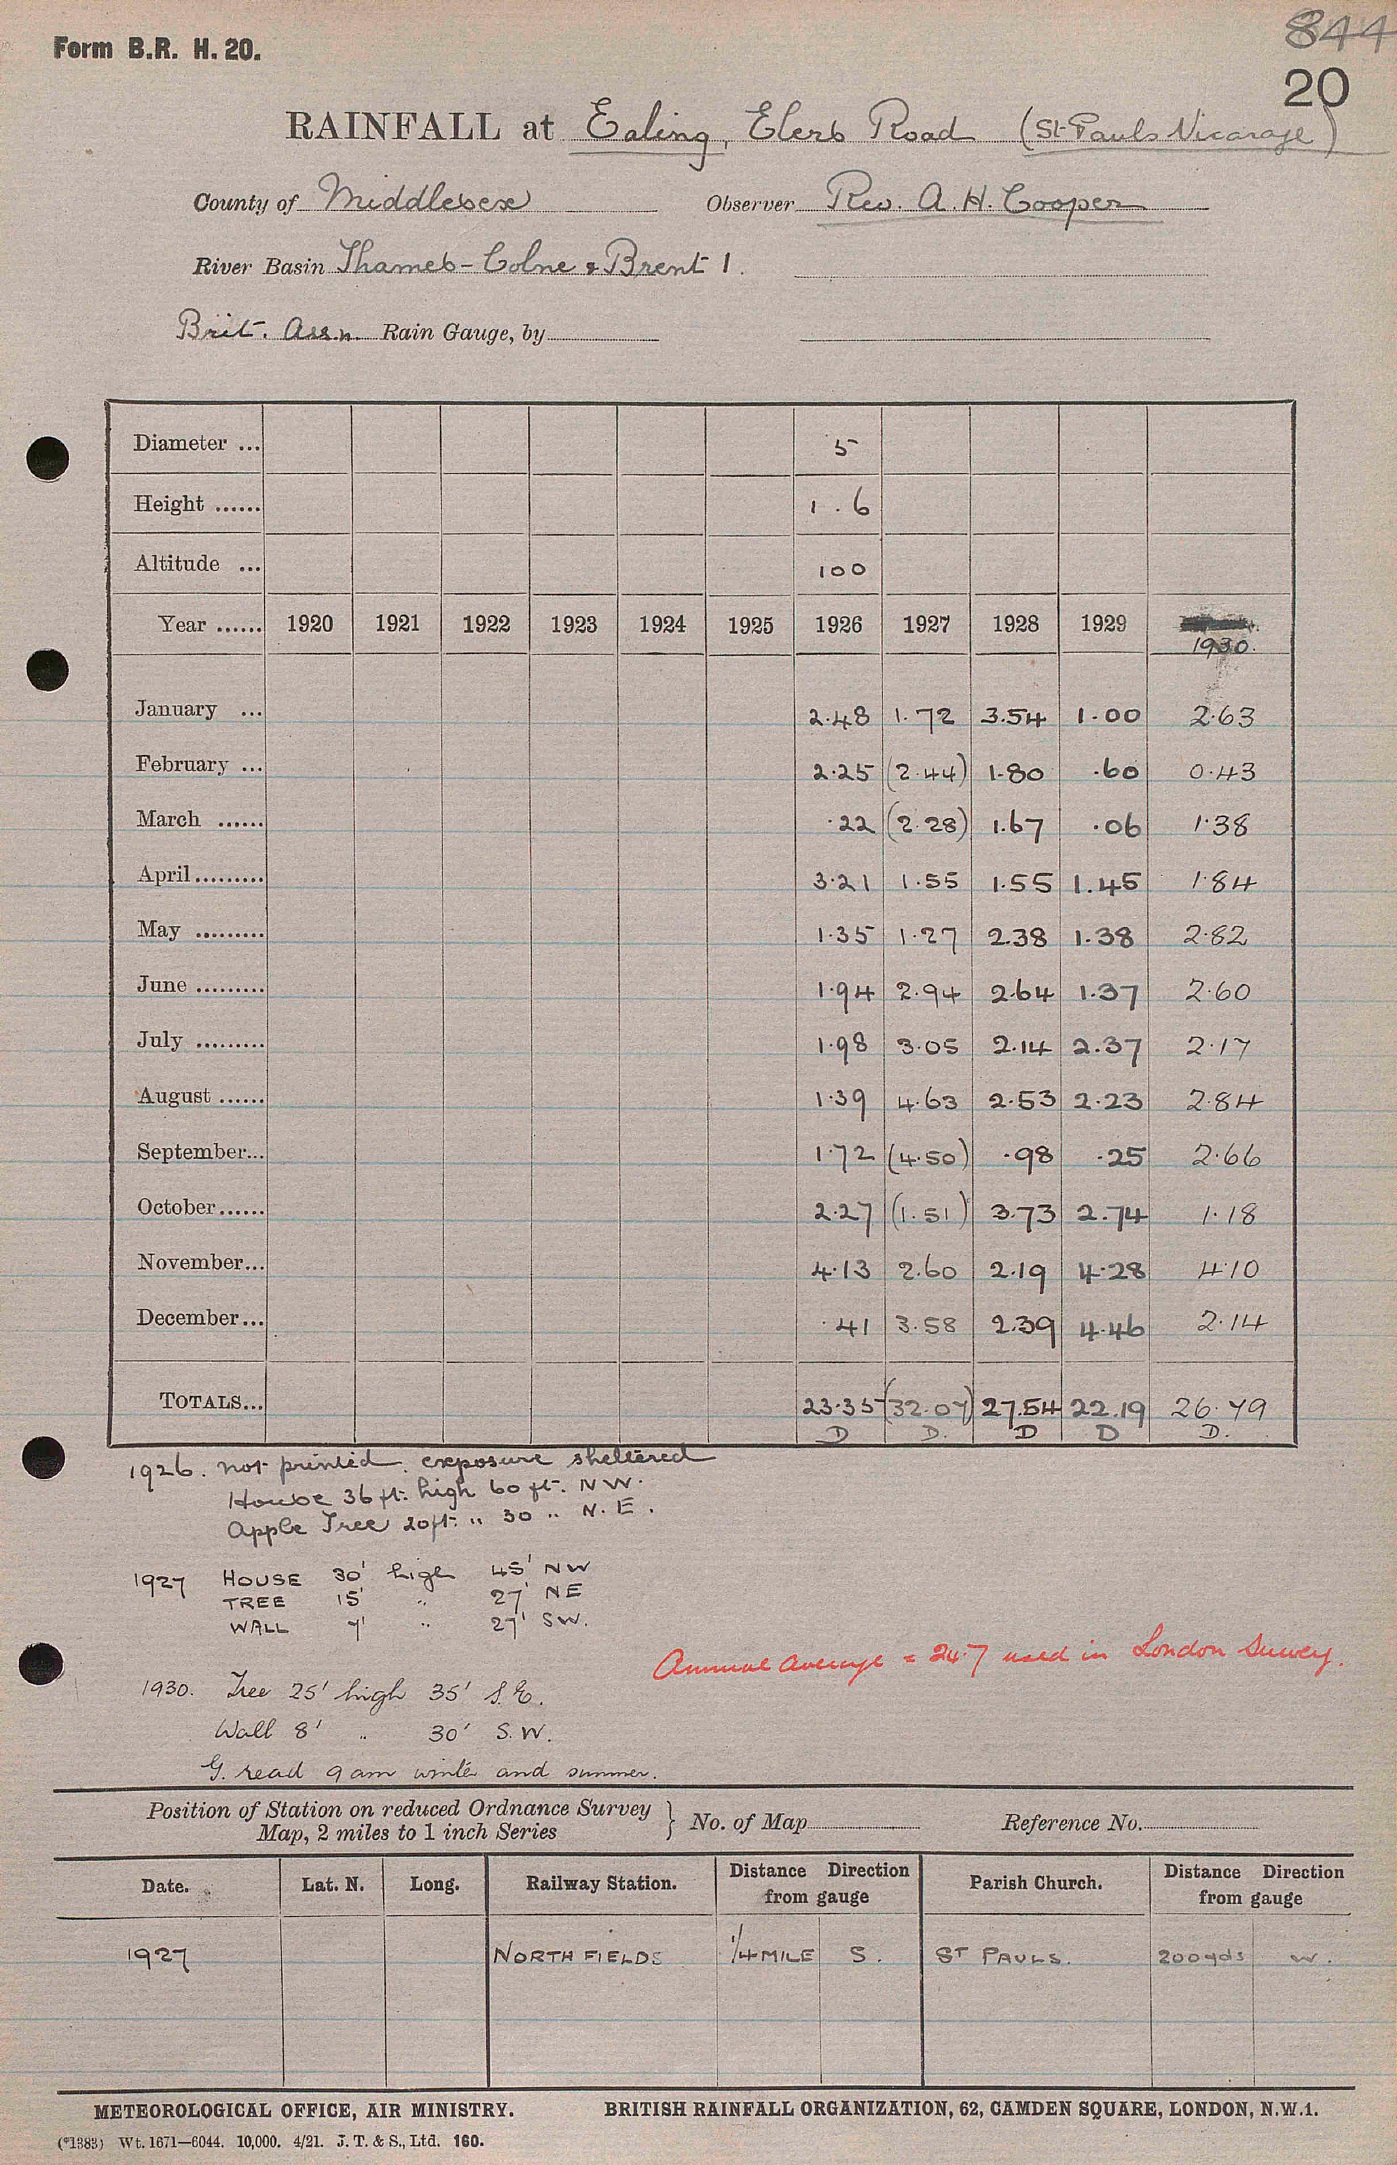 844
Form B.R. H. 20.
20
RAINFALL at Ealing, Elers Road (St. Pauls Vicarage)
County of Middlesex Observer Rev. A. H. Cooper
River Basin Thames - Colne & Brent 1.
Brit. Assn. Rain Gauge, by
Diameter ... 5
Height ...... 1 . 6
Altitude ... 100
Year ...... 1920 1921 1922 1923 1924 1925 1926 1927 1928 1929 1930.
January ... 2.48 1.72 3.54 1.00 2.63
February ... 2.25 (2.44) 1.80 .60 0.43
March ...... .22 (2.28) 1.67 .06 1.38
April......... 3.21 1.55 1.55 1.45 1.84
May ......... 1.35 1.27 2.38 1.38 2.82
June ......... 1.94 2.94 2.64 1.37 2.60
July ......... 1.98 3.05 2.14 2.37 2.17
August ...... 1.39 4.63 2.53 2.23 2.84
September... 1.72 (4.50) .98 .25 2.66
October...... 2.27 (1.51) 3.73 2.74 1.18
November... 4.13 2.60 2.19 4.28 4.10
December... .41 3.58 2.39 4.46 2.14
TOTALS... 23.35 (32.07) 27.54 22.19 26.79
D D. D D D.
1926. not printed. exposure sheltered
House 36 ft. high 60 ft. NW.
Apple Tree 20ft. " 30 " N.E.
1927 HOUSE 30' high 45' NW
TREE 15' " 27' NE
WALL 7' " 27' SW.
Annual average = 24.7 used in London Survey.
1930. Tree 25' high 35' S.E.
Wall 8' " 30' S.W.
G. read 9 am winter and summer.
Position of Station on reduced Ordnance Survey } No. of Map Reference No.
Map, 2 miles to 1 inch Series
Date. Lat. N. Long. Railway Station. Distance Direction from gauge Parish Church. Distance Direction from gauge
1927 NORTHFIELDS 1/4 MILE S. ST PAULS. 200 yds W.
METEOROLOGICAL OFFICE, AIR MINISTRY. BRITISH RAINFALL ORGANIZATION, 62, CAMDEN SQUARE, LONDON, N.W.1.
(*1383) Wt. 1671—6044. 10,000. 4/21. J. T. & S., Ltd. 160.